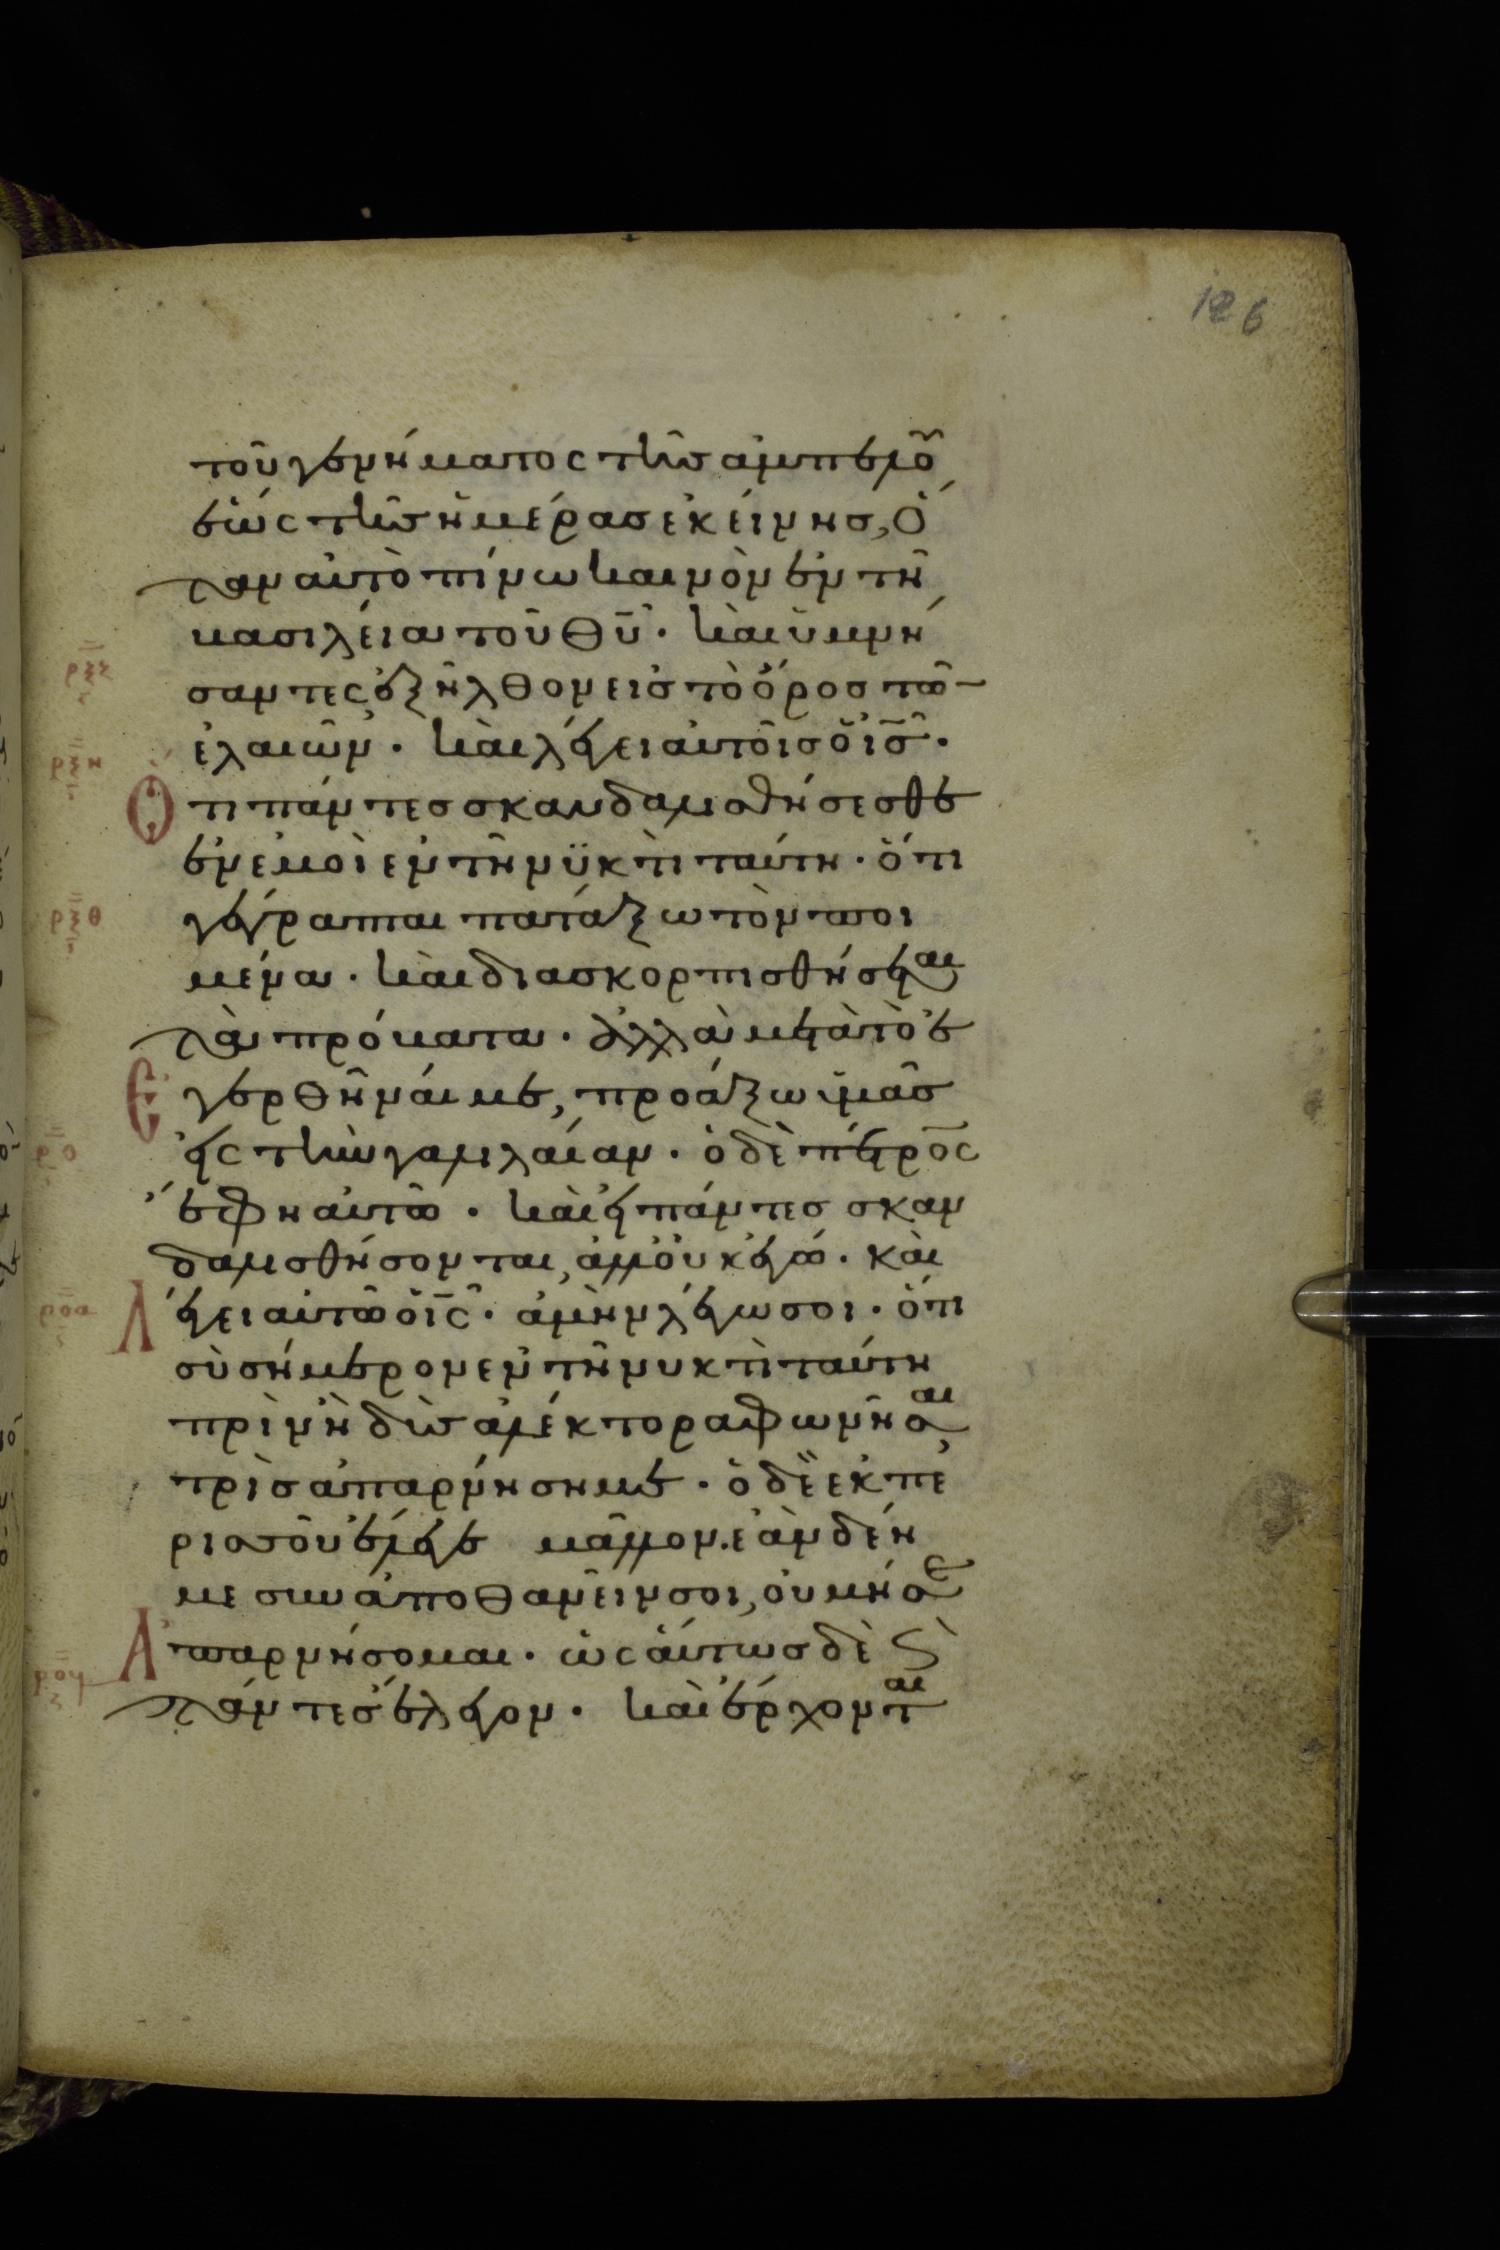 126
τοῦ γεννήματος τῆς ἀμπέλου
ἕως τῆς ἡμέρας ἐκείνης, ὅ
ταν αὐτὸ πίνω καινὸν ἐν τῆ
βασιλεία τοῦ θῦ· καὶ ὑμνή
σαντες ἐξῆλθον εἰς τὸ ὄρος τῶ–
ἐλαιῶν· καὶ λέγει αὐτοῖς ὁ ις·
Ὅτι πάντες σκανδαλισθήσεσθε
ἐν ἐμοὶ ἐν τῆ νϋκτὶ ταύτη· ὅτι
γέγραπται πατάξω τὸν ποι
μένα· καὶ διασκορπισθήσεται
τὰ πρόβατα· ἀλλὰ μετὰ τὸ ἐ
Εγερθῆναί με, προάξω ὑμᾶς
εἰς τὴν γαλιλαίαν· ὁ δὲ πέτρος
ἔφη αὐτῶ· καὶ εἰ πάντες σκαν
δαλισθήσονται, ἀλλ' οὐκ ἐγώ· καὶ
Λέγει αὐτῶ ὁ ις· ἀμὴν λέγω σοι· ὅτι
σὺ σήμερον ἐν τῆ νυκτὶ ταύτη
πρὶν ἢ δὶς ἀλέκτορα φωνῆσαι
τρὶς ἀπαρνήση με· ὁ δὲ ἐκ πε
ρισσοῦ ἔλεγε μᾶλλον. ἐὰν δέη
με συναποθανεῖν σοι, οὐ μή σε
Ἀπαρνήσομαι· ὡσαύτως δὲ ϛ̀
πάντες ἔλεγον· καὶ ἔρχονται
ρξζ
ρξη
ρξθ
ρο
ροα